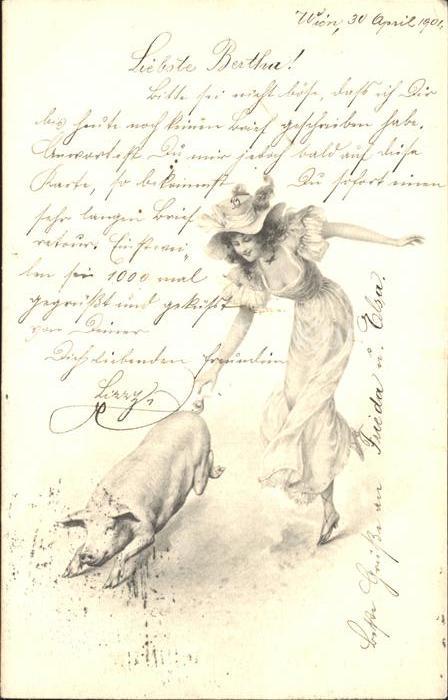 Wien, 30 April 1901.
Liebste Bertha!
Bitte sei nicht böse, daß ich Dir
bis heute noch keinen Brief geschrieben habe.
Anwortest Du mir jedoch bald auf diese
Karte, so bekommst Du sofort einen
sehr langen Brief
retour. Einstwei-
len sei 1000 mal
gegrüßt und geküßt
von Deiner
Dich liebenden Freundin
Lizzy.
Beste Grüße an Frieda u. Elsa.